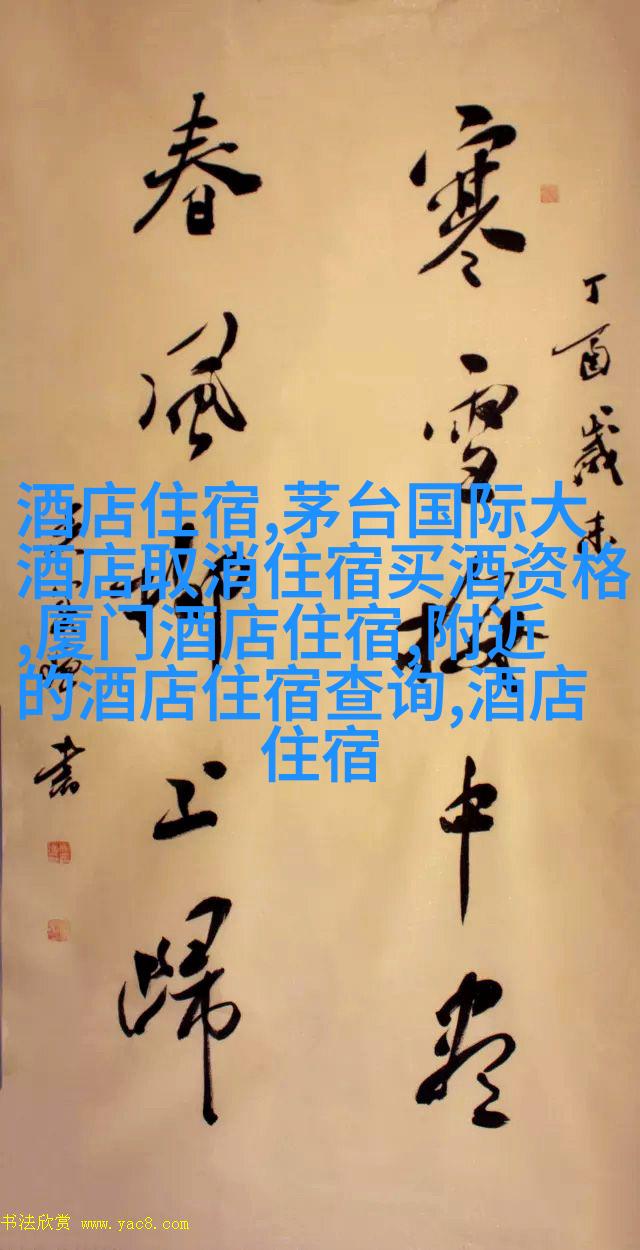 寒雪梅中尽
春風柳上歸
丁酉岁末
书
酒店住宿,茅台国际大
酒店取消住宿买酒资格
,厦门酒店住宿,附近
的酒店住宿查询,酒店
住宿
书法欣赏 www.yac8.com